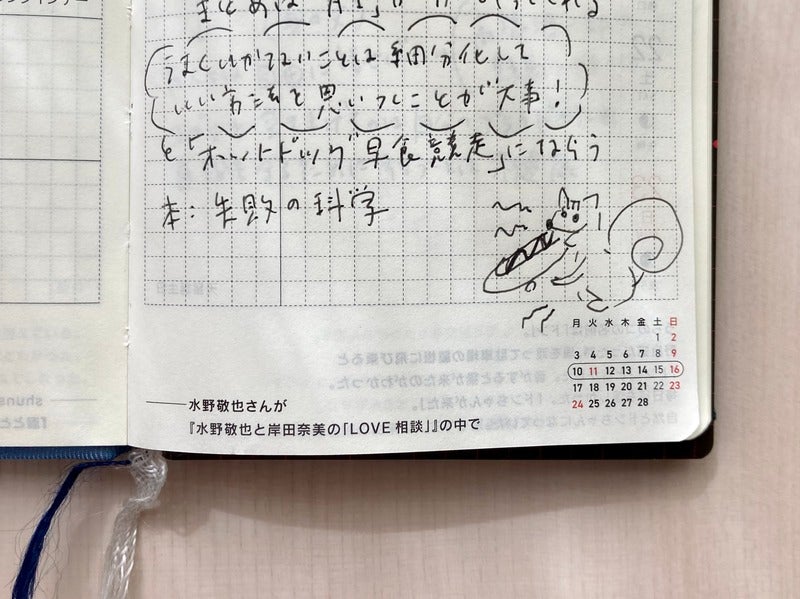 うまくいかないことは細分化して
いい方法を思いつくことが大事!
を「ホットドッグ早食競走」にならう
本:失敗の科学
月 火 水 木 金 土 日
1 2
3 4 5 6 7 8 9
10 11 12 13 14 15 16
17 18 19 20 21 22 23
24 25 26 27 28
水野敬也さんが
『水野敬也と岸田奈美の「LOVE 相談」』の中で